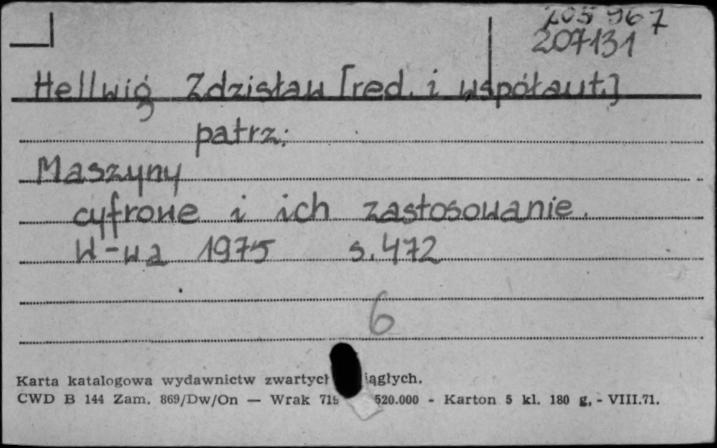 205 967
207131
Hellwig Zdzisław [red. i współaut.]
patrz:
Maszyny
cyfrowe i ich zastosowanie.
W-wa 1975 s. 472
6
Karta katalogowa wydawnictw zwartych iągłych.
CWD B 144 Zam. 869/Dw/On — Wrak 520.000 - Karton 5 kl. 180 g. - VIII.71.